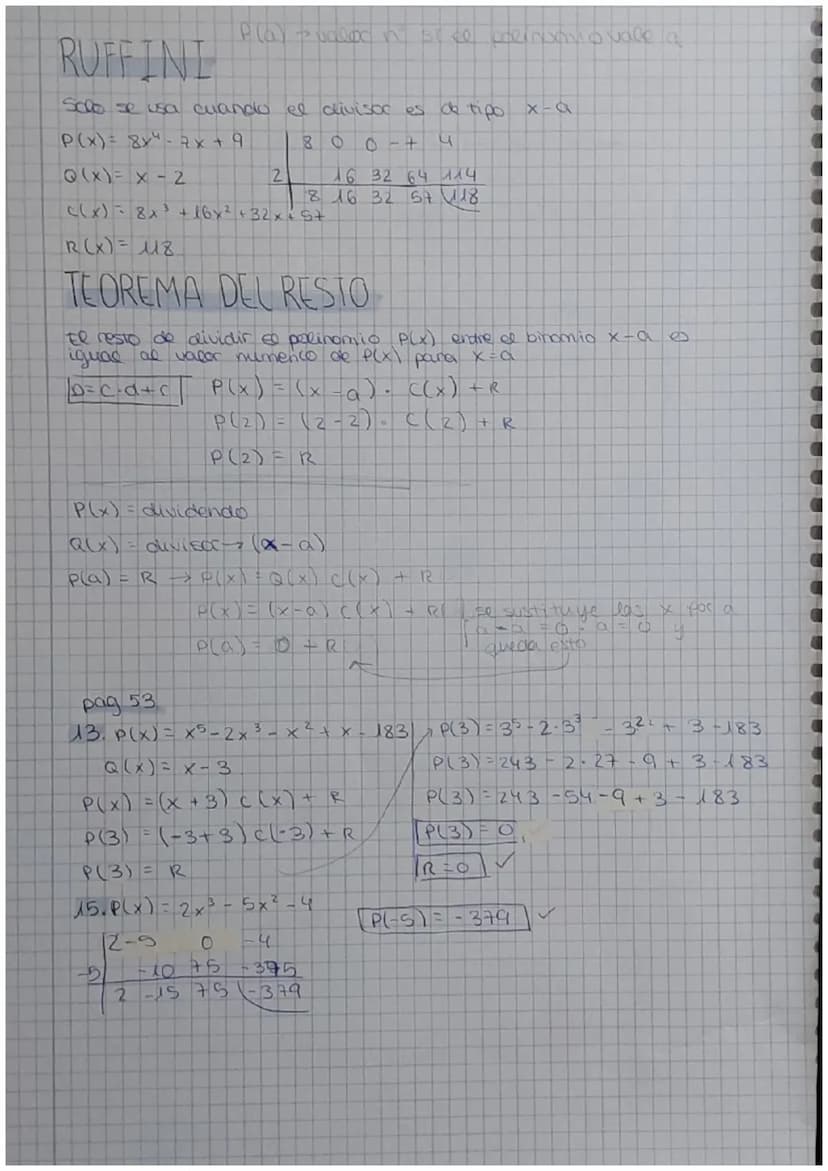 P(a) → valor nº si el polinomio vale a
RUFFINI
Solo se usa cuando el divisor es de tipo x-a
P(x)= 8x⁴ - 7x + 9
8 0 0 -7 4
Q(x)= x - 2
2 16 32 64 114
8 16 32 57 118
C(x)= 8x³ + 16x² + 32x + 57
R(x)= 118
TEOREMA DEL RESTO
El resto de dividir el polinomio P(x) entre el binomio x-a es
igual al valor numerico de P(x) para x=a
D=c·d+c P(x) = (x-a) · C(x) + R
P(2) = (2-2) · C(2) + R
P(2) = R
P(x) = dividendo
Q(x) = divisor → (x-a)
P(a) = R → P(x) = Q(x) C(x) + R
P(x) = (x-a) C(x) + R
se sustituye las x por a
a-a = 0 · a = 0 y
P(a) = 0 + R
queda esto
pag 53
13. P(x) = x⁵ - 2x³ - x² + x - 183
Q(x) = x - 3
P(x) = (x + 3) C(x) + R
P(3) = (-3+3) C(-3) + R
P(3) = R
P(3) = 3⁵ - 2·3³ - 3² + 3 - 183
P(3) = 243 - 2·27 - 9 + 3 - 183
P(3) = 243 - 54 - 9 + 3 - 183
P(3) = 0
R = 0 ✓
15. P(x) = 2x³ - 5x² - 4
P(-5) = -379 ✓
2 -5 0 -4
-5 -10 75 -375
2 -15 75 -379